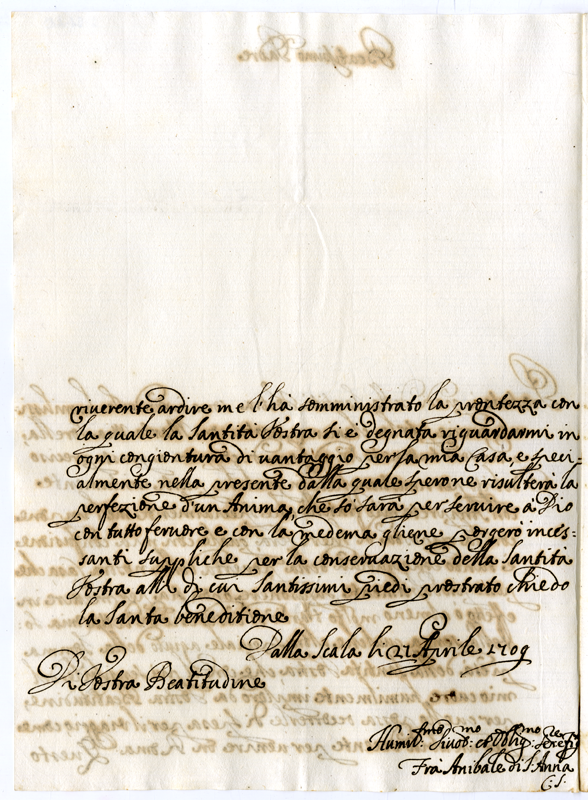 riverente ardire me l'hà somministrato la prontezza con
la quale la Santità Vostra si è degnata riguardarmi in
ogni congiontura di vantaggio per la mia Casa, e speci-
almente nella presente dalla quale sperone risulterà la
perfezione d'un Anima, che so sarà per servire à Dio
con tutto fervore e con la medema gliene porgerò inces-
santi suppliche per la conservazione della Santità
Vostra alli di cui Santissimi piedi prostrato chiedo
la Santa beneditione
Dalla Scala li 21 Aprile 1709
Di Vostra Beatitudine
Humil.mo Divot.mo et Oblig.mo
Frà Anibale di S: Anna
C: S: